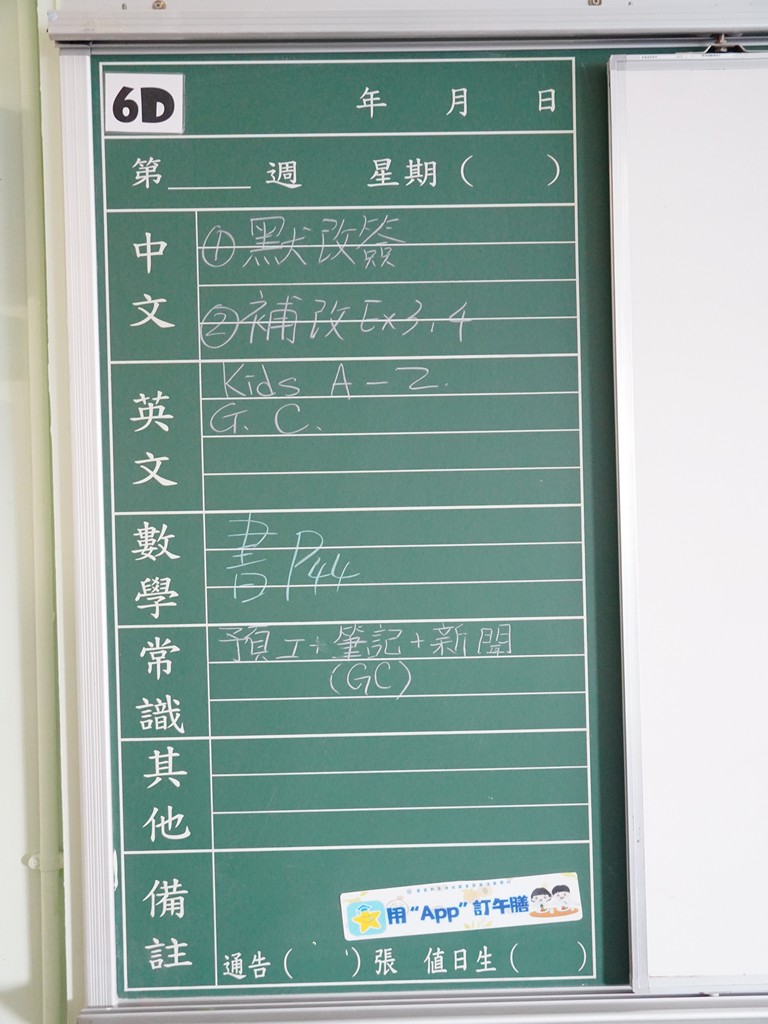 6D 年 月 日
第____週 星期( )
中文
①默改簽
②補改Ex3,4
英文
Kids A-Z.
G. C.
數學
書P44
常識
預工+筆記+新聞
(GC)
其他
備註
用“App”訂午膳
通告( )張 值日生( )